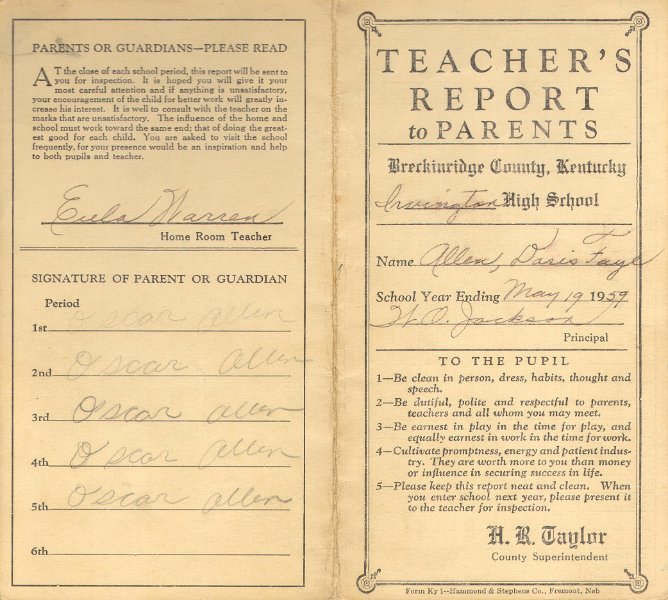 PARENTS OR GUARDIANS—PLEASE READ
AT the close of each school period, this report will be sent to
you for inspection. It is hoped you will give it your
most careful attention and if anything is unsatisfactory,
your encouragement of the child for better work will greatly in-
crease his interest. It is well to consult with the teacher on the
marks that are unsatisfactory. The influence of the home and
school must work toward the same end; that of doing the great-
est good for each child. You are asked to visit the school
frequently, for your presence would be an inspiration and help
to both pupils and teacher.
Eula Warren
Home Room Teacher
SIGNATURE OF PARENT OR GUARDIAN
Period
1st Oscar Allen
2nd Oscar Allen
3rd Oscar Allen
4th Oscar Allen
5th Oscar Allen
6th
TEACHER'S
REPORT
to PARENTS
Breckinridge County, Kentucky
Irvington High School
Name Allen, Doris Faye
School Year Ending May 19 1959
H. O. Jackson
Principal
TO THE PUPIL
1—Be clean in person, dress, habits, thought and
speech.
2—Be dutiful, polite and respectful to parents,
teachers and all whom you may meet.
3—Be earnest in play in the time for play, and
equally earnest in work in the time for work.
4—Cultivate promptness, energy and patient indus-
try. They are worth more to you than money
or influence in securing success in life.
5—Please keep this report neat and clean. When
you enter school next year, please present it
to the teacher for inspection.
H. R. Taylor
County Superintendent
Form Ky 1—Hammond & Stephens Co., Fremont, Neb